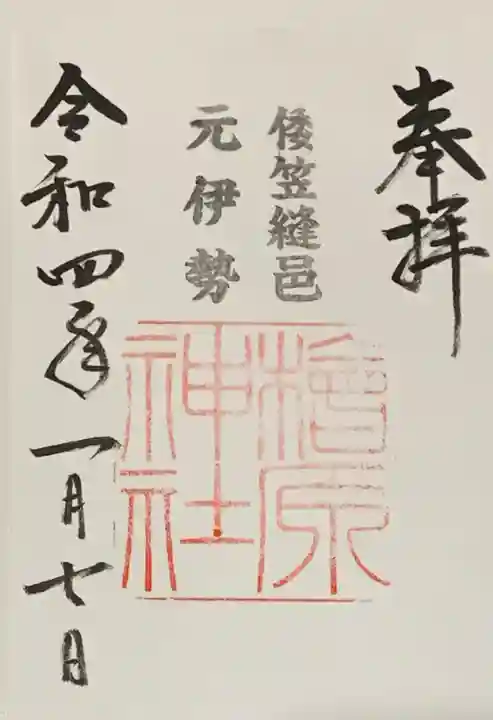 奉拝
倭笠縫邑
元伊勢
檜原
神社
令和四年一月七日